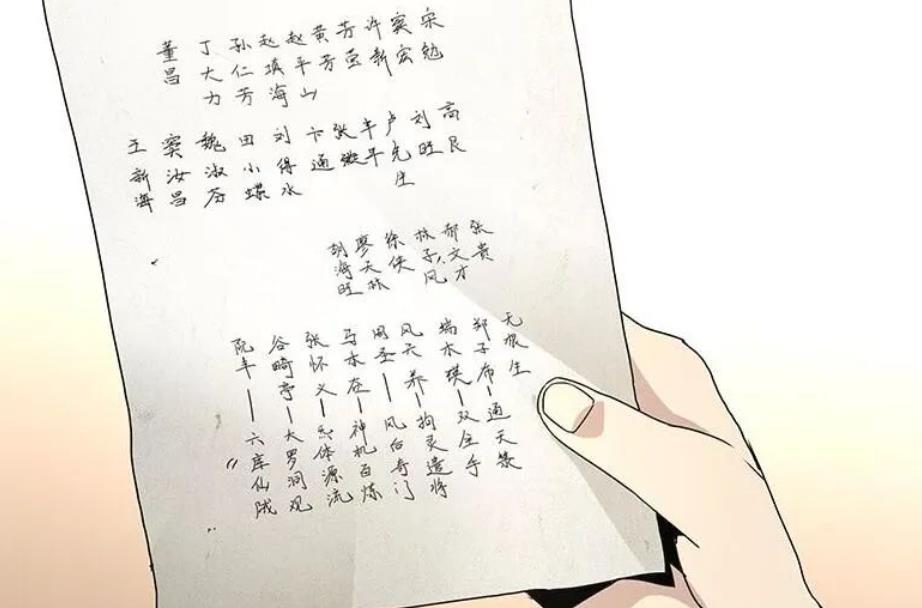 宋勉
窦宏
许新
芳莹
黄芳
赵平山
赵瑱海
孙仁芳
丁大力
董昌
高艮
刘旺
卢生
丰平
张
卞通
刘得水
田小蝶
魏淑芬
窦汝昌
王新海
张贵
郝文才
林子风
徐侠
廖天林
胡海旺
无根生
郑子布—通天箓
端木瑛—双全手
风天养—拘灵遣将
周圣—风后奇门
马本在—神机百炼
张怀义—炁体源流
谷畸亭—大罗洞观
阮丰—六库仙贼